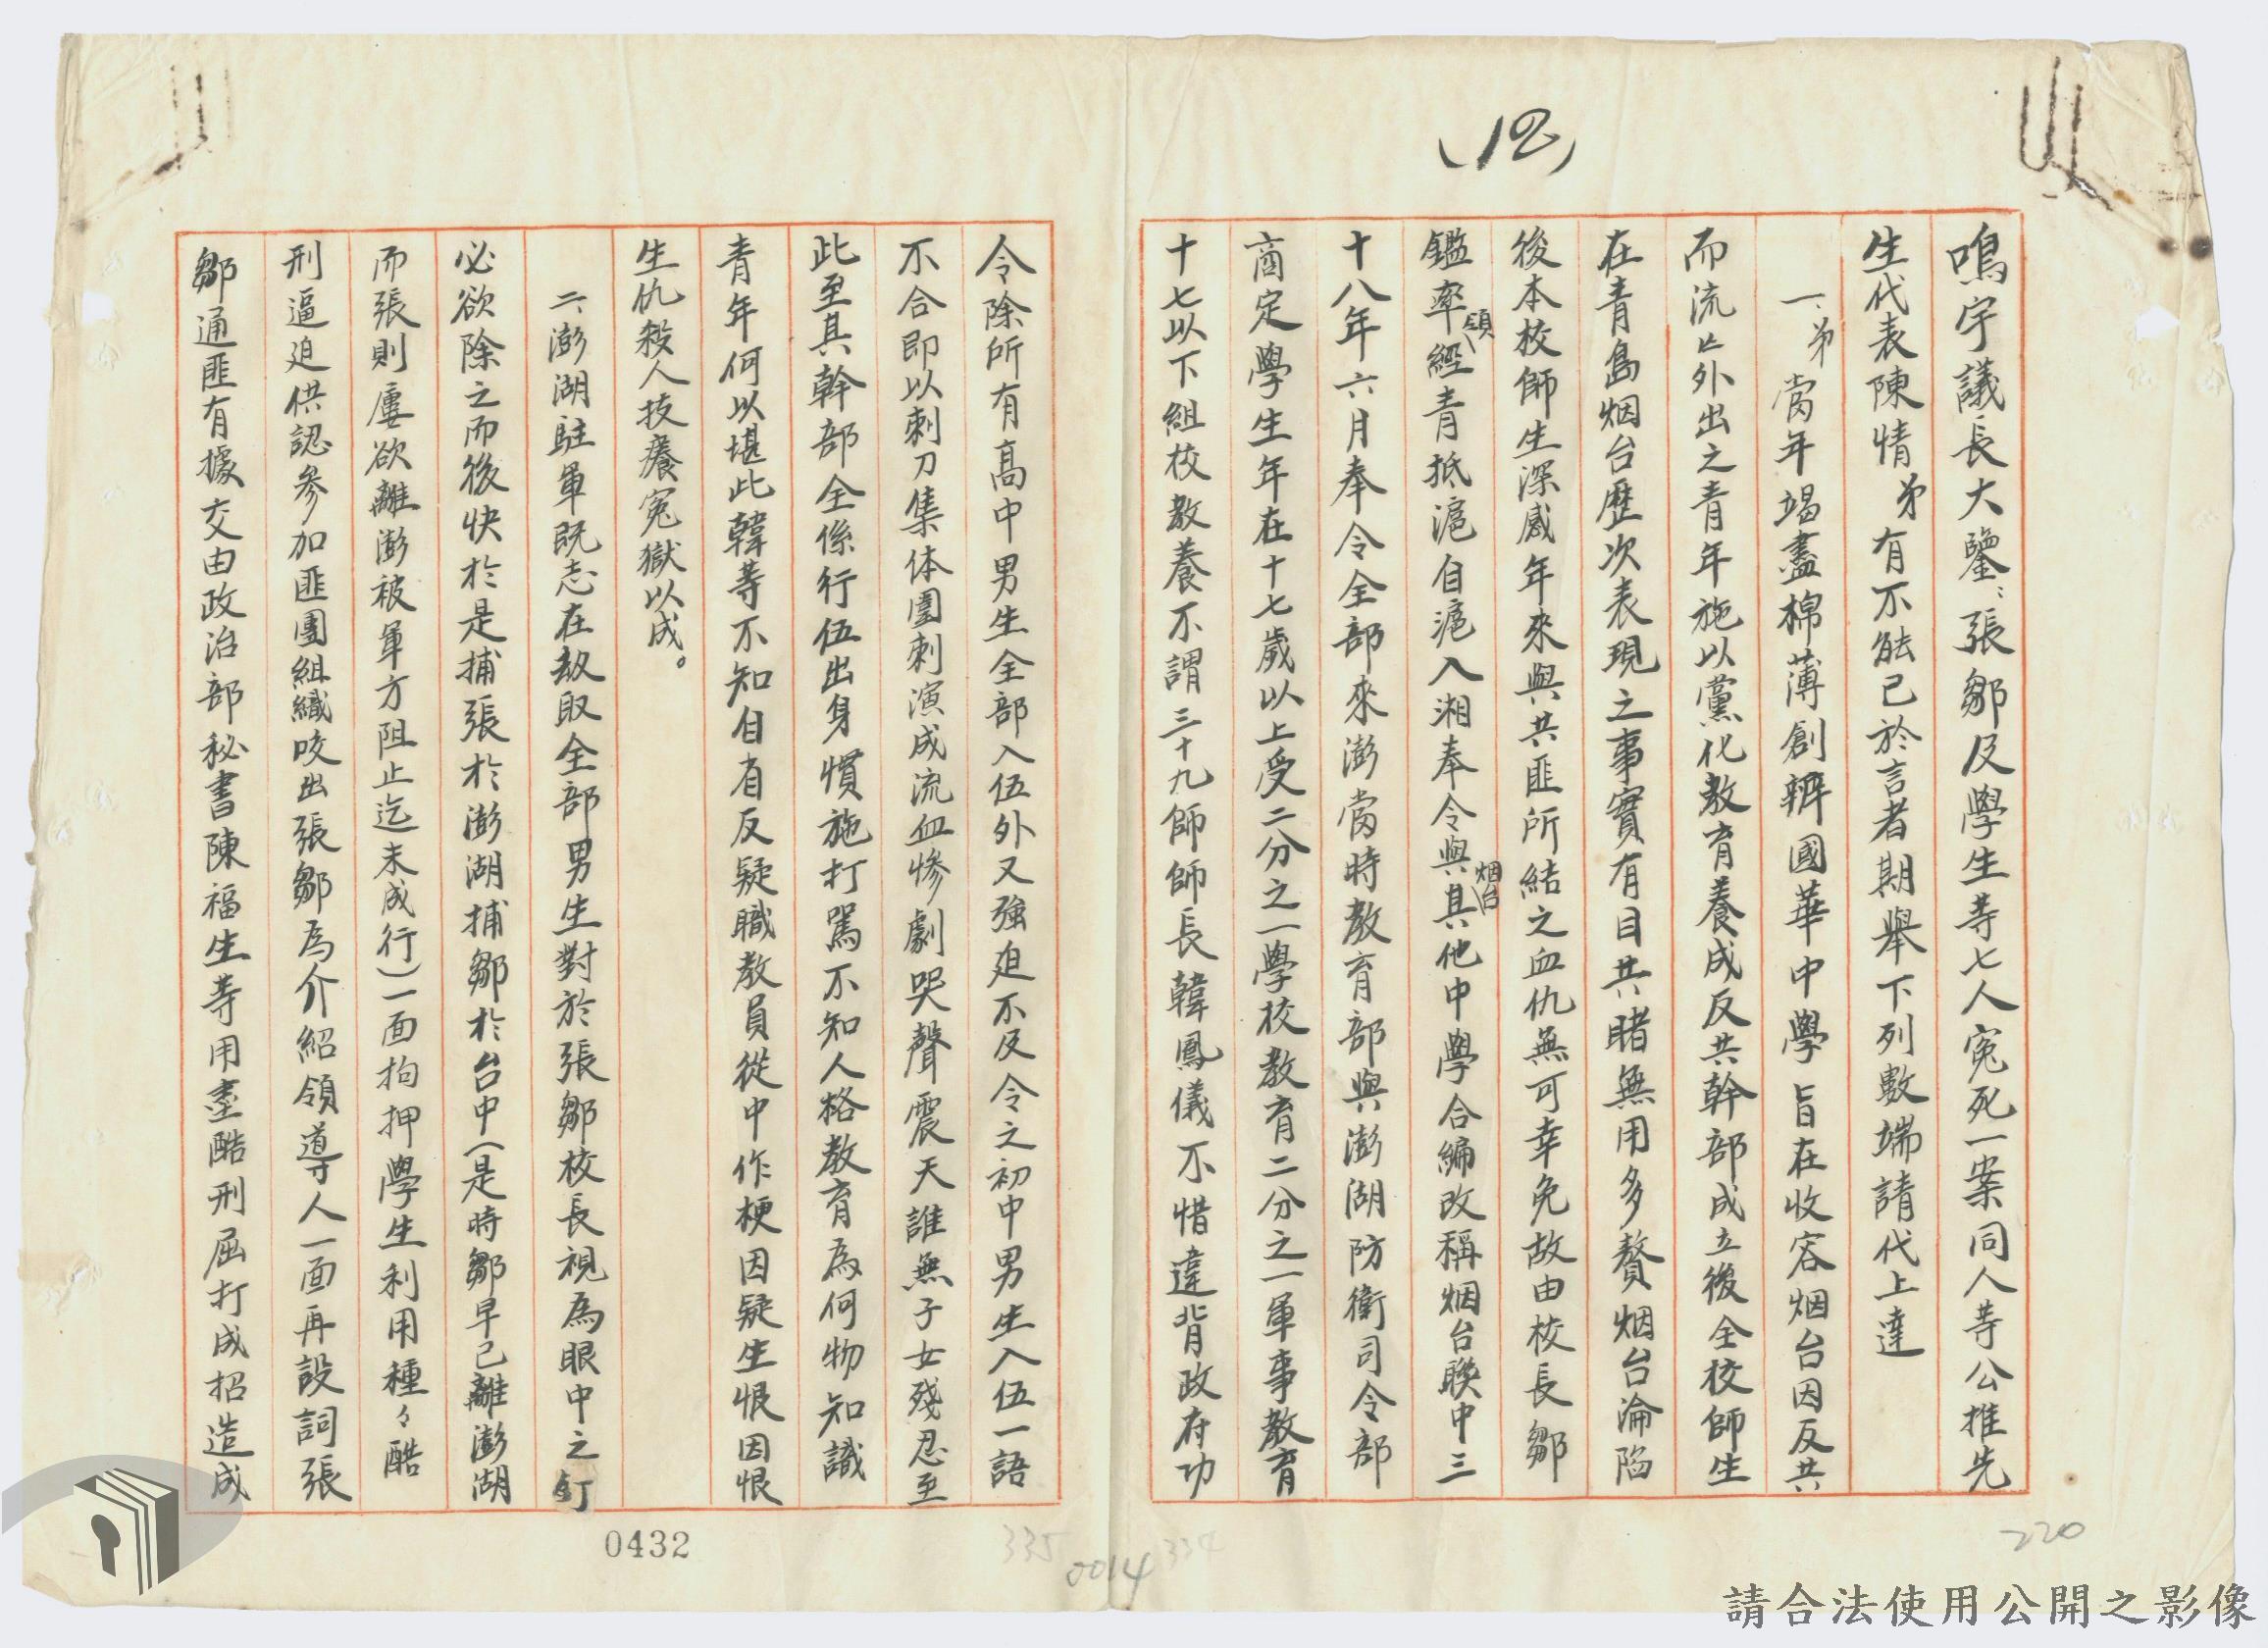 (12)
鳴宇議長大鑒：張鄒及學生等七人冤死一案同人等公推先
生代表陳情弟有不能已於言者期舉下列數端請代上達
一、弟當年竭盡棉薄創辦國華中學旨在收容烟台因反共
而流亡外出之青年施以黨化教育養成反共幹部成立後全校師生
在青島烟台歷次表現之事實有目共睹無用多贅烟台淪陷
後本校師生深感年來與共匪所結之血仇無可幸免故由校長鄒
鑑率領經青抵滬自滬入湘奉令與烟台其他中學合編改稱烟台聯中三
十八年六月奉令全部來澎當時教育部與澎湖防衛司令部
商定學生年在十七歲以上受二分之一學校教育二分之一軍事教育
十七以下組校教養不謂三十九師師長韓鳳儀不惜違背政府功
令除所有高中男生全部入伍外又強迫不及令之初中男生入伍一語
不合即以刺刀集体圍刺演成流血慘劇哭聲震天誰無子女殘忍至
此至其幹部全係行伍出身慣施打罵不知人格教育為何物知識
青年何以堪此韓等不知自省反疑職教員從中作梗因疑生恨因恨
生仇殺人技癢冤獄以成。
二、澎湖駐軍既志在劫取全部男生對於張鄒校長視為眼中之釘
必欲除之而後快於是捕張於澎湖捕鄒於台中(是時鄒早已離澎湖
而張則屢欲離澎被軍方阻止迄未成行)一面拘押學生利用種々酷
刑逼迫供認參加匪團組織咬出張鄒為介紹領導人一面再設詞張
鄒通匪有據交由政治部秘書陳福生等用盡酷刑屈打成招造成
0432
335
0014
334
220
請合法使用公開之影像